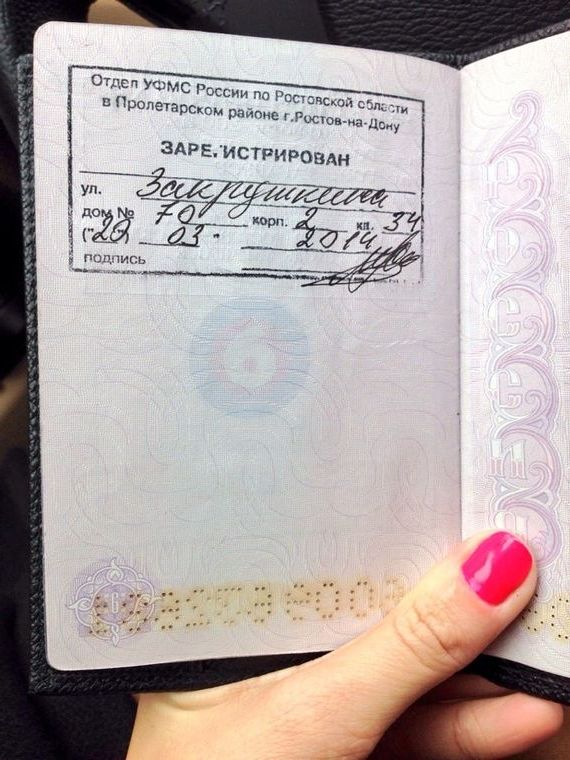 Отдел УФМС России по Ростовской области
в Пролетарском районе г.Ростов-на-Дону
ЗАРЕГИСТРИРОВАН
ул. Закрушкина
дом № 70 корп. 2 кв. 34
("20") 03 2014
подпись
6